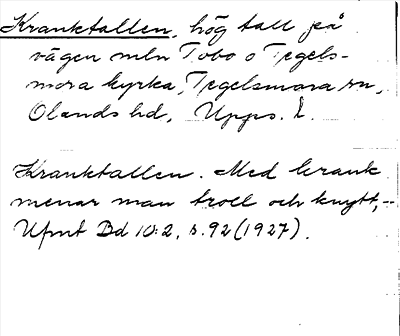 Kranktallen, hög tall på
vägen mln Tobo o Tegels-
mora kyrka, Tegelsmora sn,
Olands hd, Upps. l.
Kranktallen. Med krank
menar man troll och knytt,--
Ufmt Bd 10:2, s. 92 (1927).